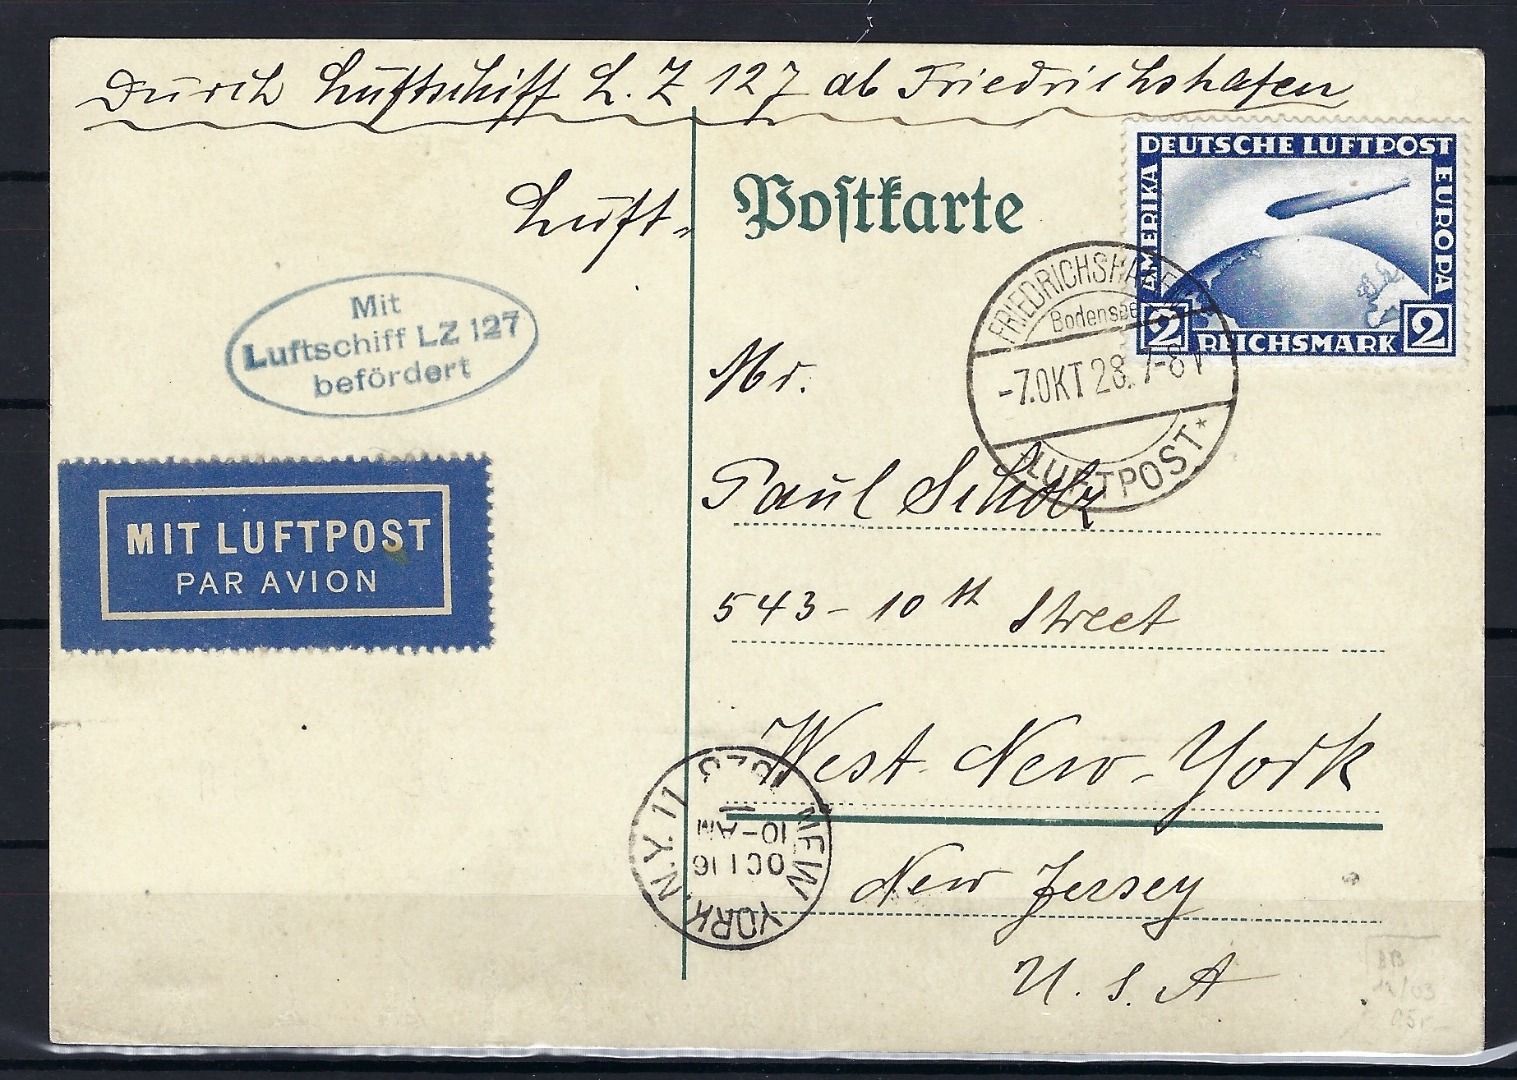 Durch Luftschiff L. Z 127 ab Friedrichshafen
DEUTSCHE LUFTPOST
AMERIKA
EUROPA
2 2
REICHSMARK
Luft-
Postkarte
FRIEDRICHSHAFEN
Bodensee
-7.OKT 28. 7-8 V
*LUFTPOST*
Mit
Luftschiff LZ 127
befördert
Mr.
Paul Scholz
MIT LUFTPOST
PAR AVION
543 - 10th Street
West New-York
NEW YORK, N.Y. 11
OCT 16
10-AM
1928
New Jersey
U. S. A